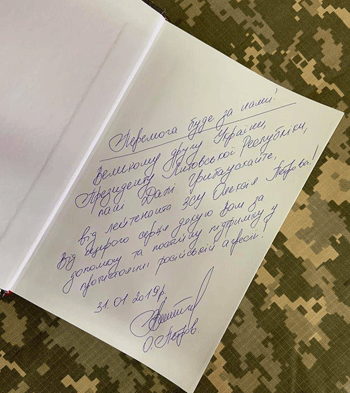 Перемога буде за нами!
Великому другу України,
Президенту Литовської Республіки,
пані Далі Грибаускайте,
від лейтенанта ЗСУ Олексія Петрова!
Від щирого серця дякую Вам за
допомогу та постійну підтримку у
протистоянні російській агресії!
31.01.2019р.
О.Петров